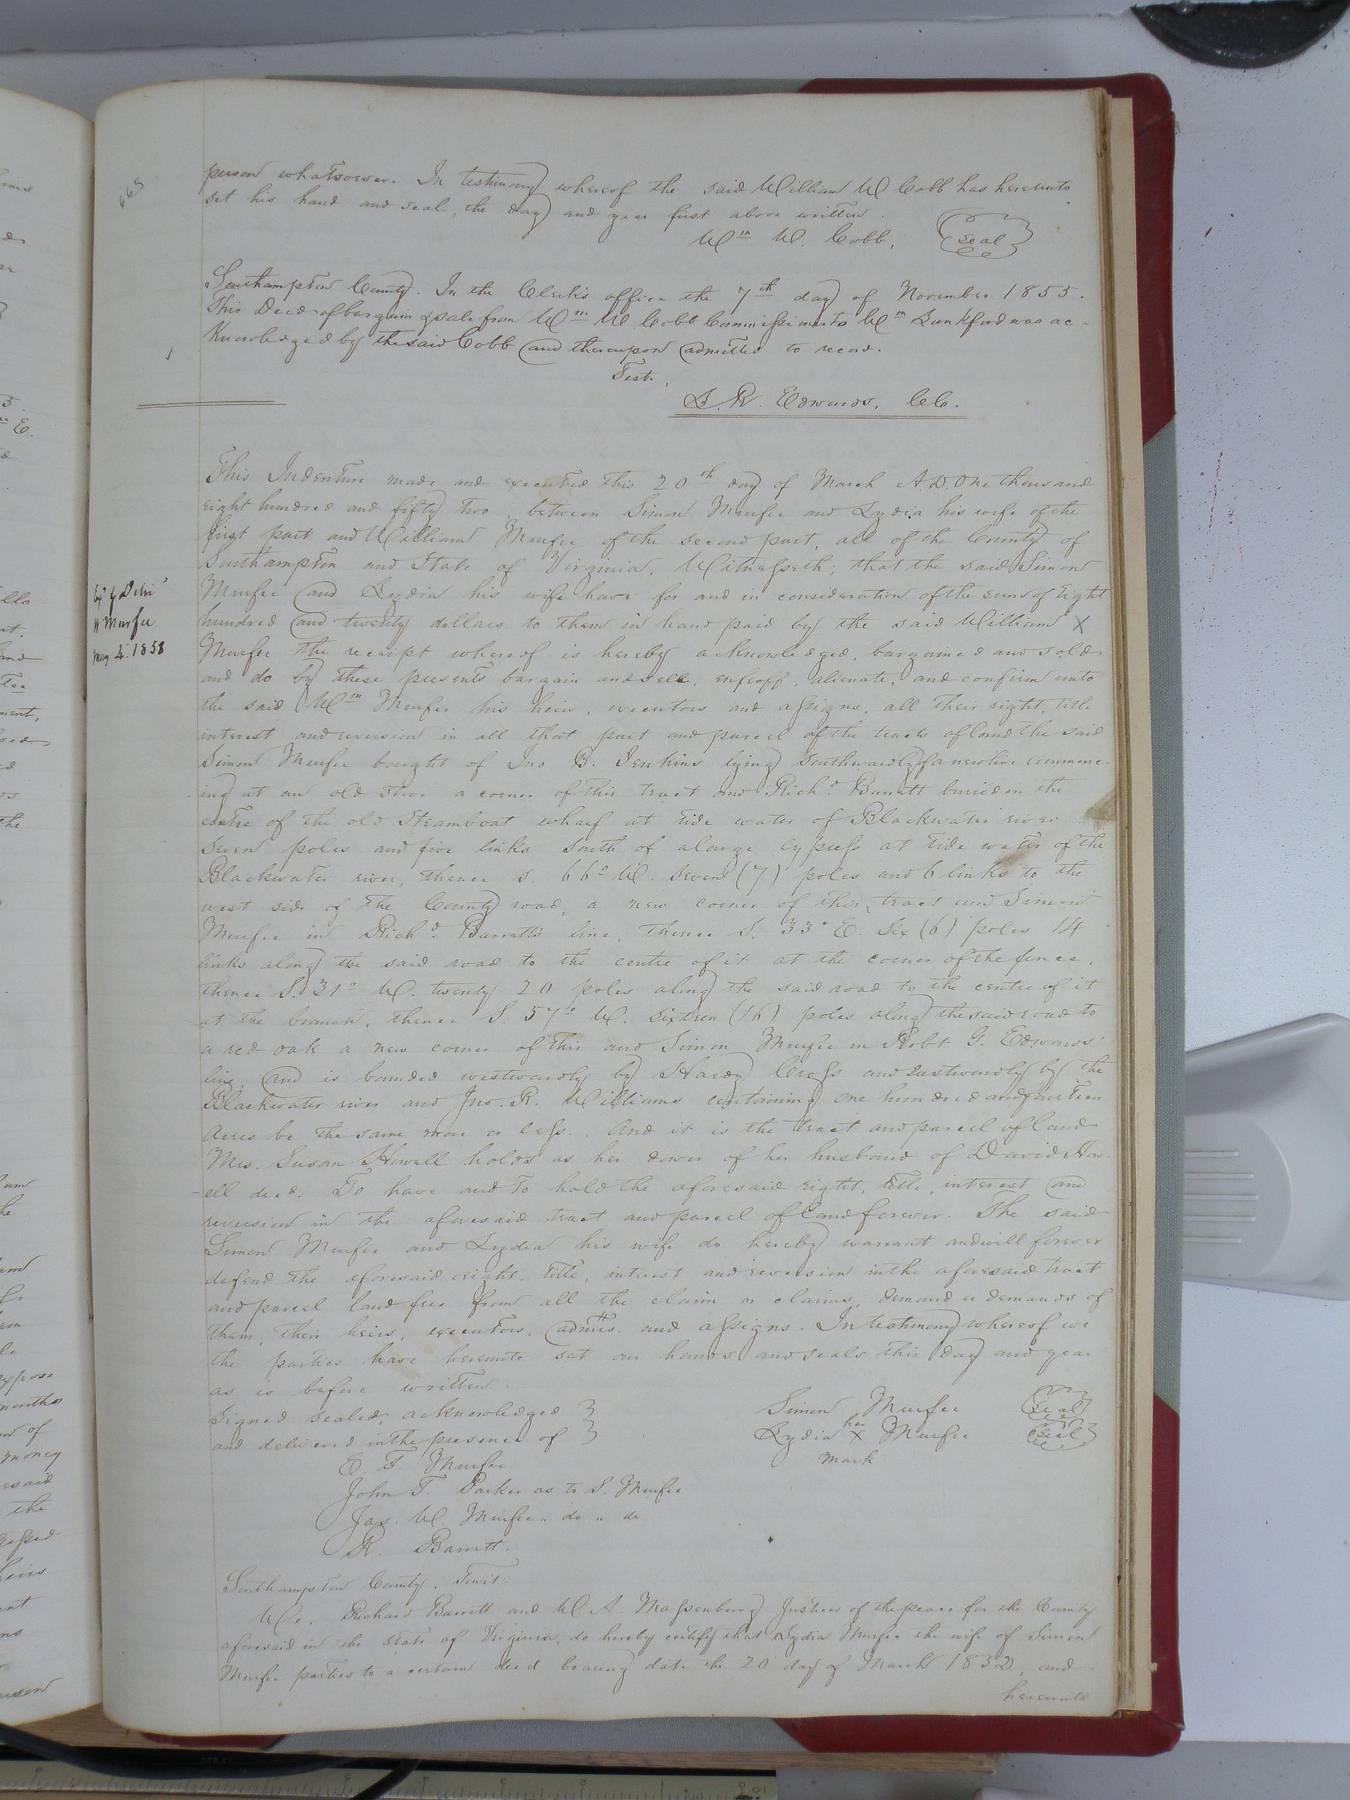 665
person whatsoever. In testimony whereof the said William W Cobb has hereunto
set his hand and seal, the day and year first above written.
Wm W. Cobb, Seal
Southampton County. In the Clerk's office the 7th day of November 1855.
This Deed of bargain & sale from Wm W Cobb Commissioner to Wm Lankford was ac-
knowledged by the said Cobb and thereupon admitted to record.
Test.
L. R. Edwards, C.C.
This Indenture made and executed this 20th day of March A.D. One thousand
eight hundred and fifty two, between Simon Murfee and Lydia his wife of the
first part and William Murfee of the second part, all of the County of
Southampton and State of Virginia, Witnesseth; that the said Simon
Murfee and Lydia his wife have for and in consideration of the sum of Eight
hundred and twenty dollars to them in hand paid by the said William X
Murfee the receipt whereof is hereby acknowledged, bargained and sold
and do by these presents bargain and sell, enfeoff, alienate, and confirm unto
the said Wm Murfee his heirs, executors and assigns, all their right, title
interest and reversion in all that part and parcel of the tracts of land the said
Simon Murfee bought of Jno B. Jenkins lying southwardly of a new line commenc-
ing at an old stove a corner of this tract and Richd Barrett buried in the
centre of the old Steamboat wharf at tide water of Blackwater river
seven poles and five links South of a large Cypress at tide water of the
Blackwater river, thence S. 66° W. seven (7) poles and 6 links to the
west side of the County road, a new corner of this tract and Simon
Murfee in Richd Barrett's line, thence S. 33° E. Six (6) poles 14
links along the said road to the centre of it at the corner of the fence,
thence S. 31° W. twenty 20 poles along the said road to the centre of it
at the branch, thence S. 57° W. sixteen (16) poles along the said road to
a red oak a new corner of this and Simon Murfee in Robt G. Edwards'
line, and is bounded westwardly by Hardy Cross and Eastwardly by the
Blackwater river and Jno. R. Williams containing one hundred and fourteen
Acres be the same more or less. And it is the tract and parcel of land
Mrs. Susan Howell holds as her dower of her husband of David How-
-ell decd. To have and to hold the aforesaid right, title, interest and
reversion in the aforesaid tract and parcel of land forever. The said
Simon Murfee and Lydia his wife do hereby warrant and will forever
defend the aforesaid right, title, interest and reversion in the aforesaid tract
and parcel land free from all the claim or claims, demand or demands of
them, their heirs, executors, admtrs. and assigns. In testimony whereof we
the parties have hereunto set our hands and seals this day and year
as is before written.
Signed sealed, acknowledged }
and delivered in the presence of }
Simon Murfee Seal
Lydia her X mark Murfee Seal
E. T. Murfee
John T. Parker as to S. Murfee
Jas. W. Murfee " do " do
R. Barrett.
Southampton County, Towit:
We, Richard Barrett and W A. Massenburg Justices of the peace for the County
aforesaid in the state of Virginia, do hereby certify that Lydia Murfee the wife of Simon
Murfee parties to a certain deed bearing date the 20 day of March 1852, and
hereunto
W Murfee
May 4. 1858